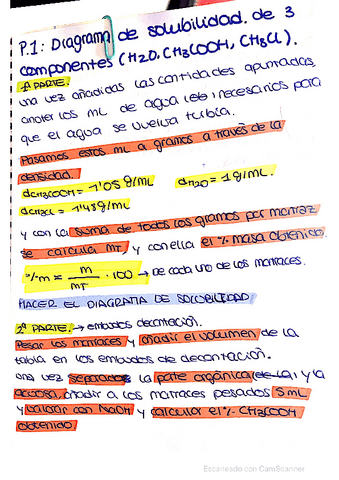 P.1: Diagrama de solubilidad de 3
componentes (H2O, CH3COOH, CH3Cl).
1ª PARTE.
una vez añadidas las cantidades apuntadas,
anotar los mL de agua necesarios para
que el agua se vuelva turbia.
Pasamos estos mL a gramos a través de la
densidad.
dCH3COOH = 1'05 g/mL dH2O = 1 g/mL.
dCH3Cl = 1'48 g/mL
y con la suma de todos los gramos por matraz
se calcula MT, y con ella el % masa obtenido.
%m = m/MT · 100 → de cada uno de los matraces.
HACER EL DIAGRAMA DE SOLUBILIDAD
2ª PARTE. → embudos decantación.
Pesar los matraces y añadir el volumen de la
tabla en los embudos de decantación.
una vez separados la parte orgánica y la
acuosa, añadir a los matraces pesados 5 mL
y valorar con NaOH y calcular el % CH3COOH
obtenido.
Escaneado con CamScanner